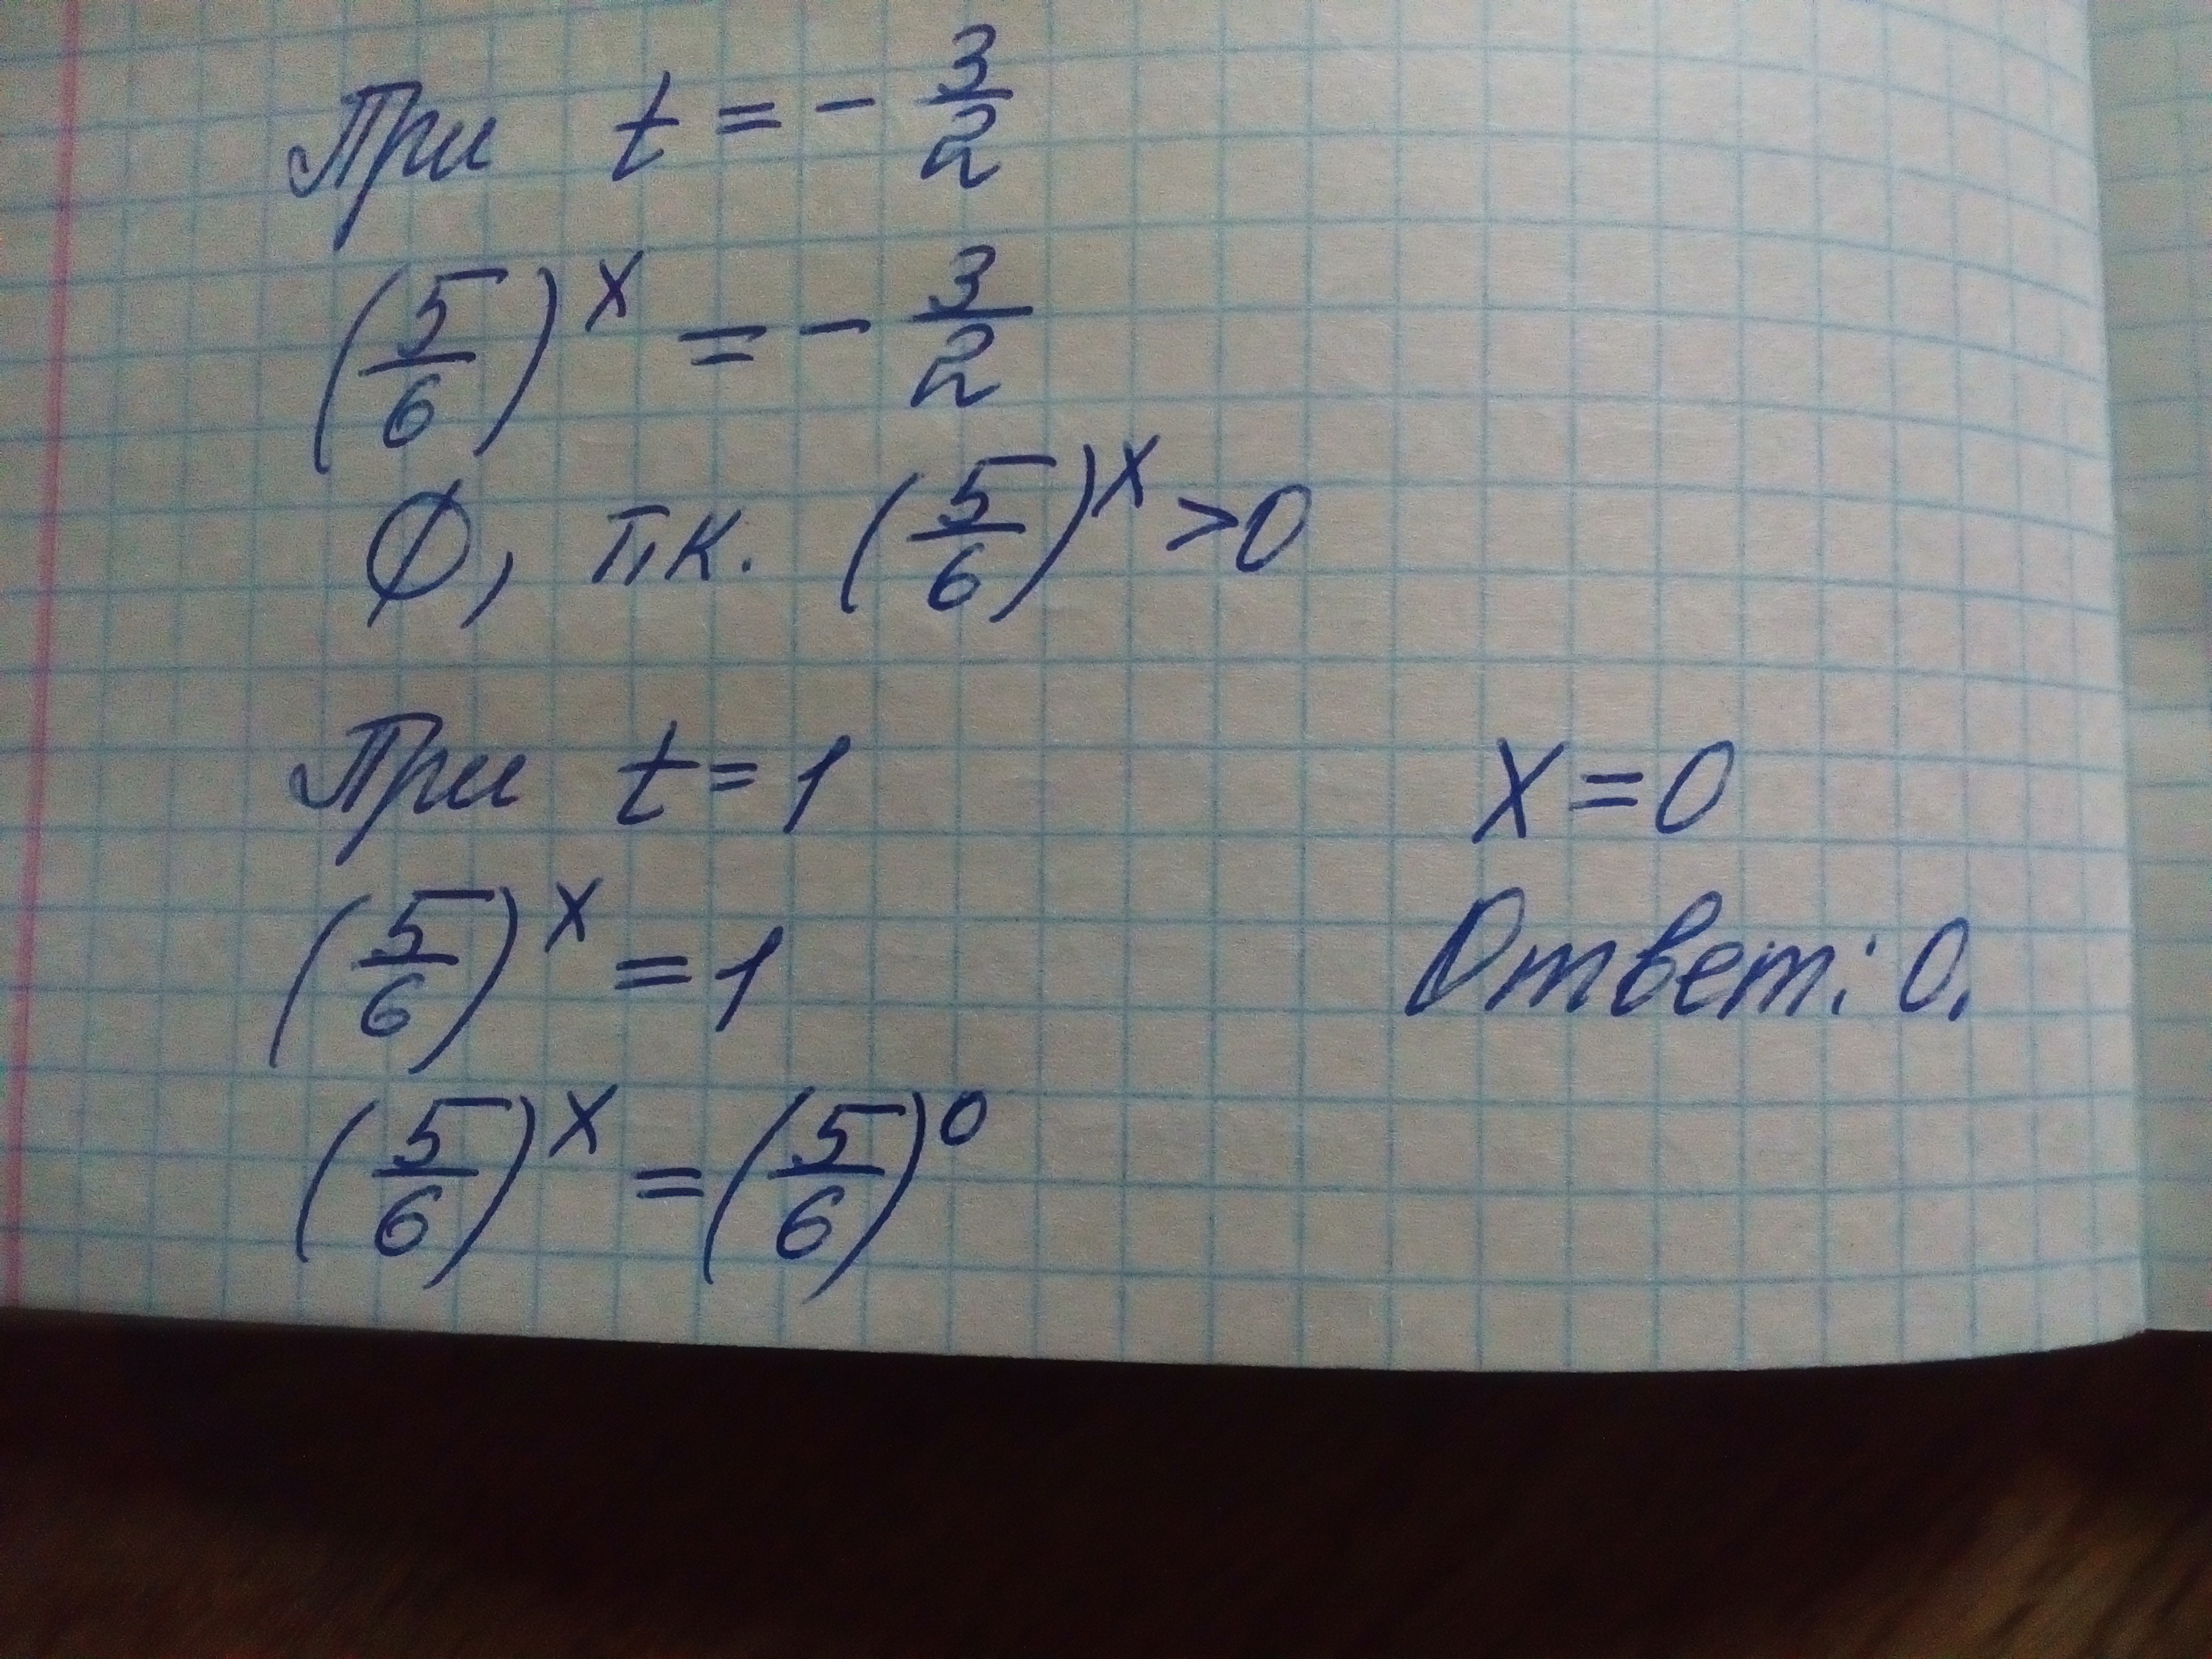 При t = - 3/2
(5/6)^x = - 3/2
∅, т.к. (5/6)^x > 0
При t = 1
(5/6)^x = 1
(5/6)^x = (5/6)^0
x = 0
Ответ: 0.